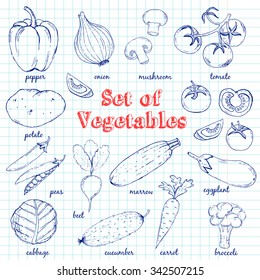 pepper
onion
mushroom
tomato
Set of
Vegetables
potato
peas
beet
marrow
eggplant
cabbage
cucumber
carrot
broccoli
shutterstock
342507215